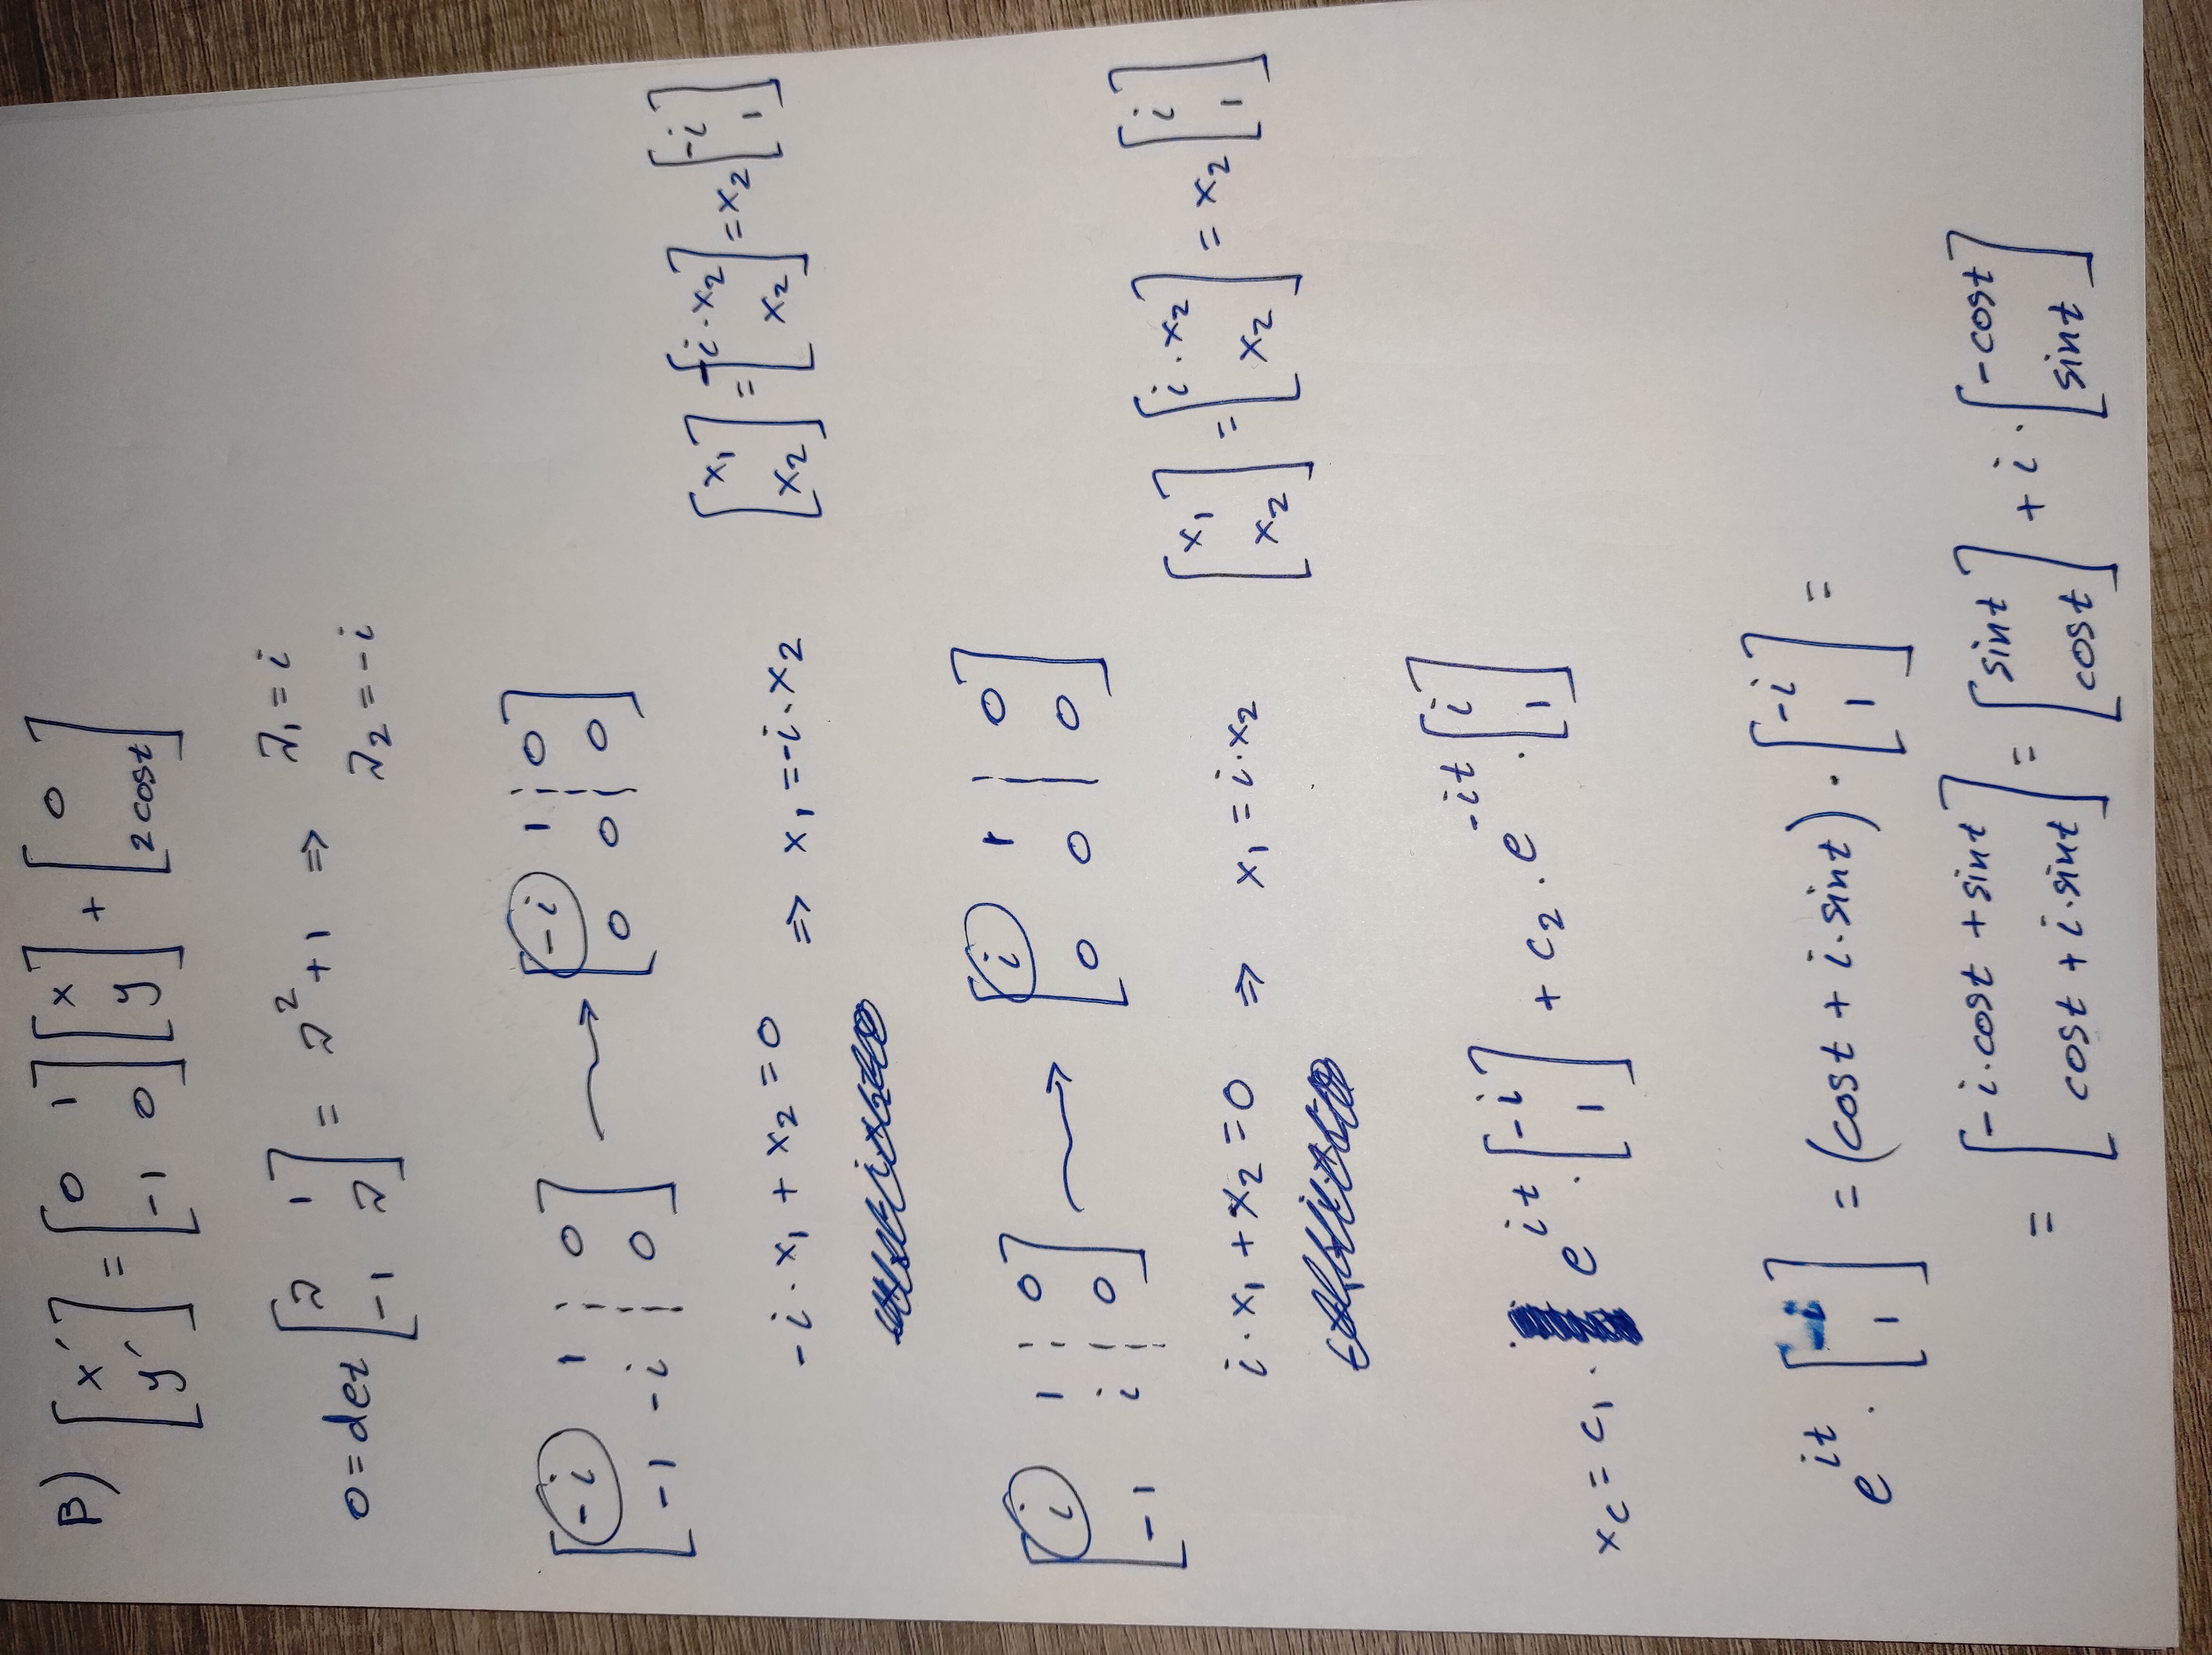 B) [x´ y´] = [0 1 -1 0] [x y] + [0 2cost]
0 = det [λ 1 -1 λ] = λ² + 1 ⇒ λ₁ = i
λ₂ = -i
[-i 1 ¦ 0 -1 -i ¦ 0] ⟿ [-i 1 ¦ 0 0 0 ¦ 0]
-i·x₁ + x₂ = 0 ⇒ x₁ = -i·x₂ [x₁ x₂] = [-i·x₂ x₂] = x₂ [-i 1]
[i 1 ¦ 0 -1 i ¦ 0] ⟿ [i 1 | 0 0 0 | 0]
i·x₁ + x₂ = 0 ⇒ x₁ = i·x₂ [x₁ x₂] = [i·x₂ x₂] = x₂ [i 1]
x_c = c₁· e^{it}·[-i 1] + c₂·e^{-it}·[i 1]
e^{it}·[-i 1] = (cost + i·sint)·[-i 1] =
= [-i·cost + sint cost + i·sint] = [sint cost] + i·[-cost sint]